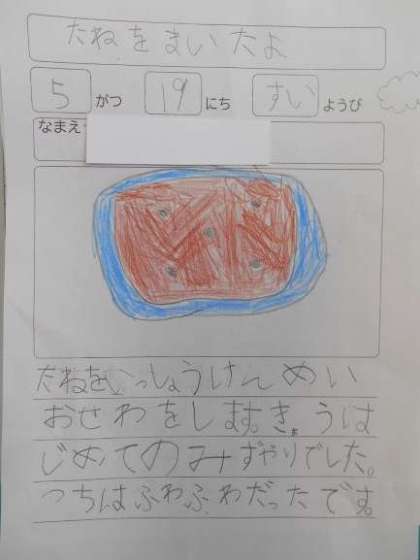 たねをまいたよ
5 がつ 19 にち すい ようび
なまえ
たねを、いっしょうけんめい
おせわをします。きょうは
じめてのみずやりでした。
つちはふわふわだったです。